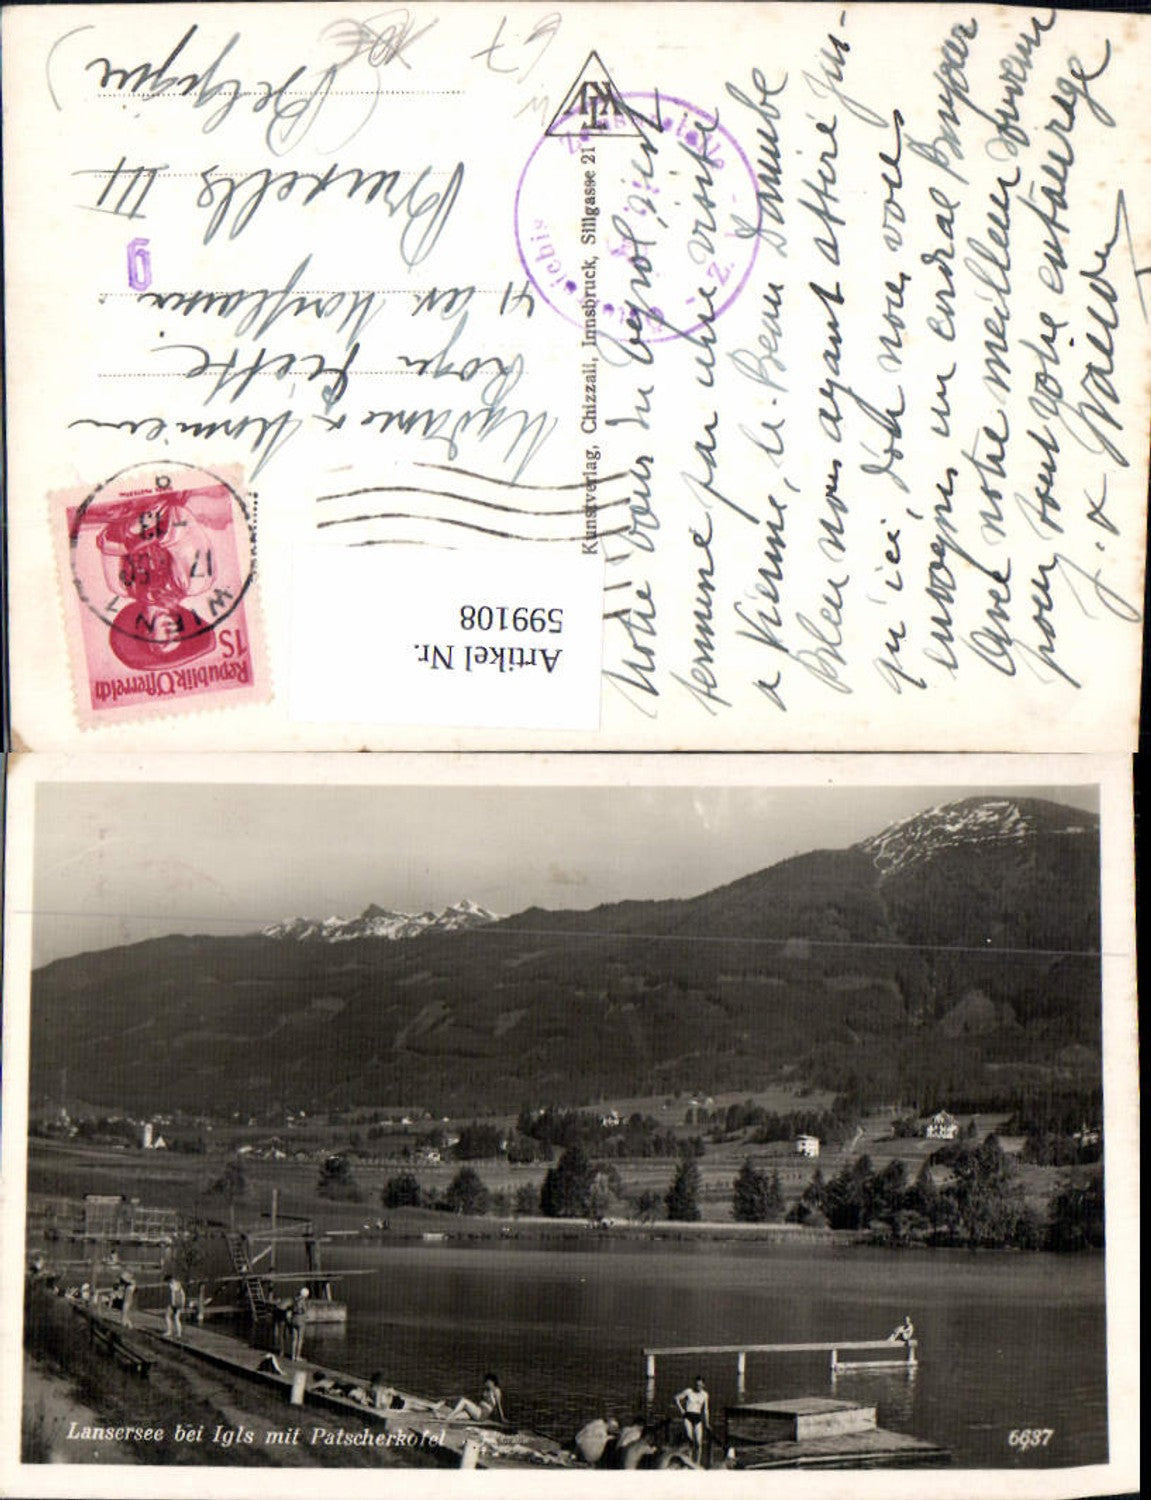 Notre tour du Tyrol, s'est
terminé par une visite
a Vienne, le "Beau Danube
Bleu nous ayant attiré jus-
qu'ici, d'où nous vous
envoyons un cordial Bonjour
Avec notre meilleur Souvenir
pour tout votre entourage
J. &
Madame & Monsieur
Roger
41 av
Bruxelles III
(Belgique)
67
6
Kunstverlag, Chizzali, Innsbruck, Sillgasse 21
Zensurstelle
Republik Österreich
1S
WIEN 1
17
-13
8
Artikel Nr.
599108
Lansersee bei Igls mit Patscherkofel
6637